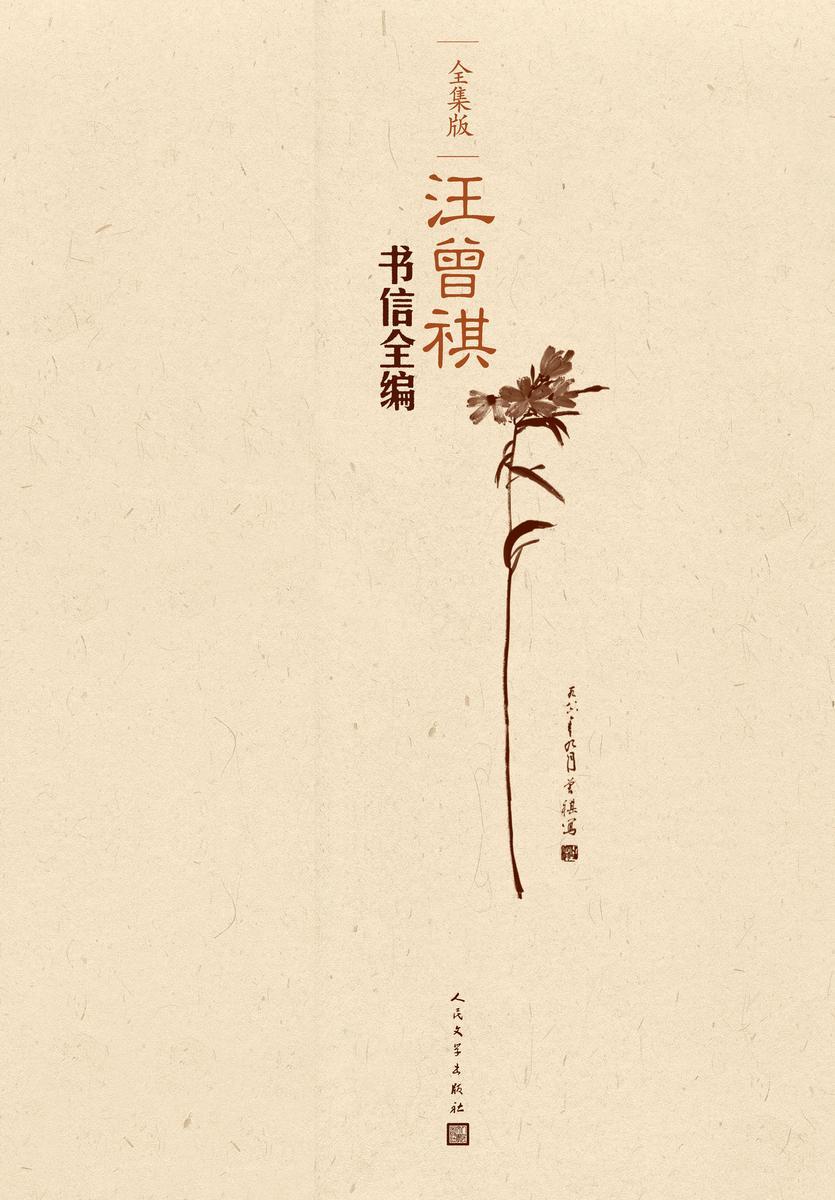 全集版
汪曾祺
书信全编
九八六年九月曾祺写
人民文学出版社